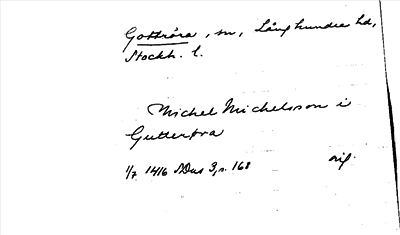 Gottröra, sn, Långhundra hd,
Stockh. l.
Michel Michelsson i
Gutterøra
1/7 1416 SDns 3, s. 168 orig.